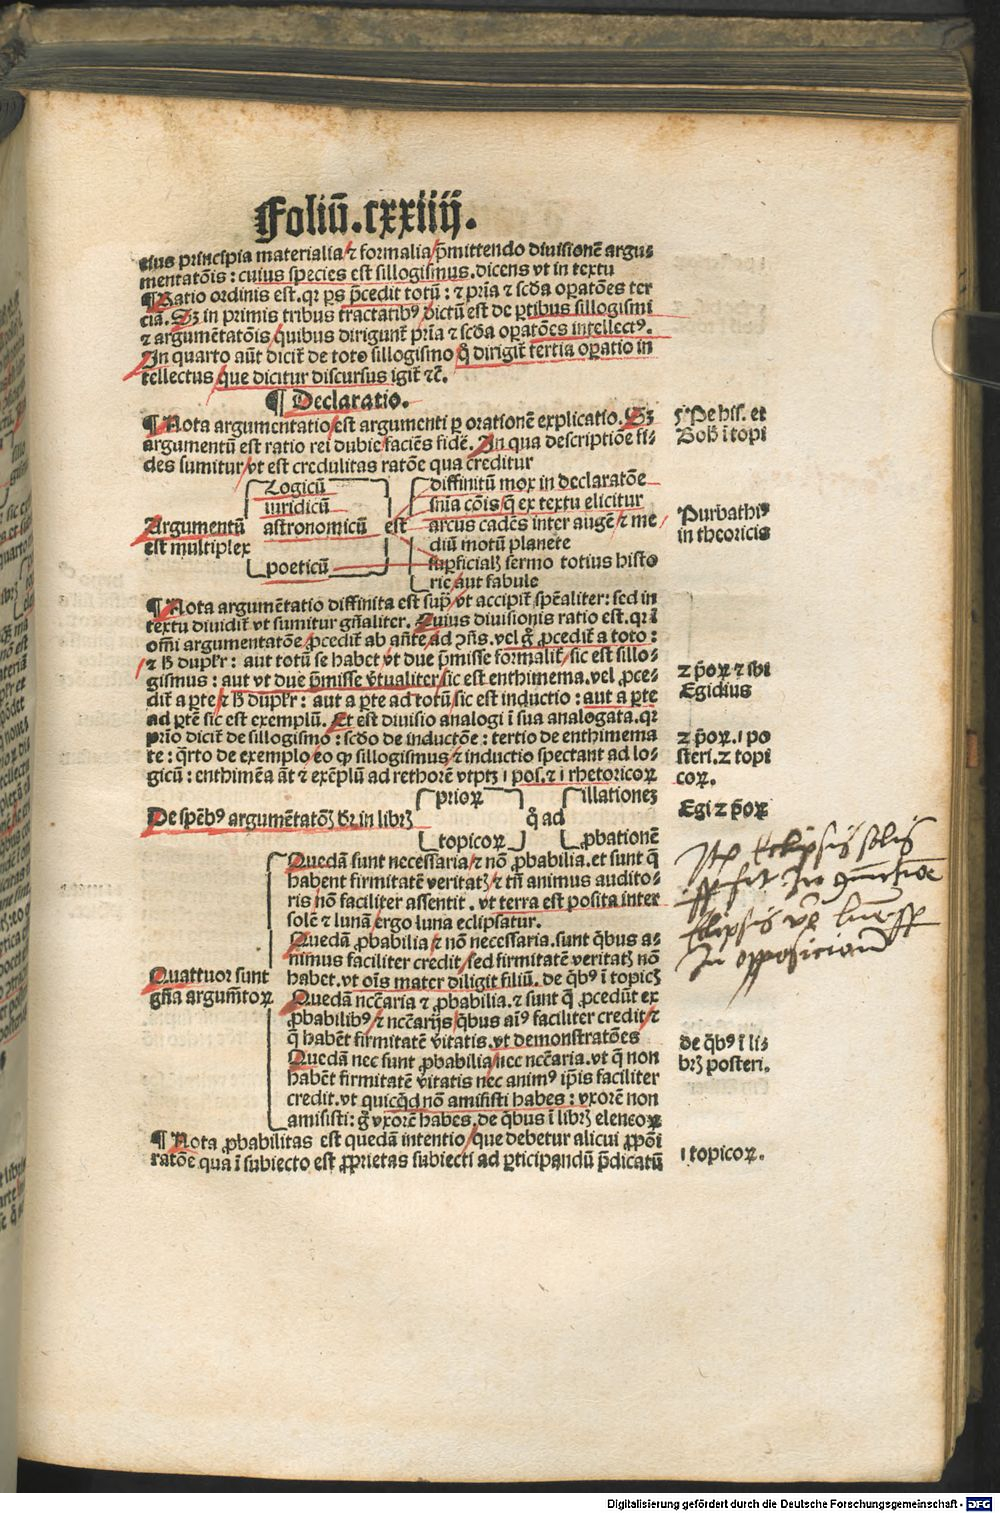 Foliū.cxxiiij.
eius principia materialia/⁊ formalia/p̄mittendo diuisionē argu-
mentatōis: cuius species est sillogismus.dicens vt in textu
¶Ratio ordinis est.qꝛ ꝑs p̄cedit totū: ⁊ pⁱia ⁊ scďa oꝑatōes ter
cia. Sꝫ in primis tribus tractatibꝰ dictū est de ꝑtibus sillogismi
⁊ argumētatōis/quibus dirigunt̄ pⁱia ⁊ scďa oꝑatōes intellectꝰ.
In quarto aūt dicit̄ de toto sillogismo q̊ dirigit̄ tertia oꝑatio in
tellectus que dicitur discursus igit̄ ⁊c̄.
¶ Declaratio.
¶ Nota argumentatio/est argumenti ꝑ orationē explicatio. Sꝫ
argumentū est ratio rei dubie/faciēs fidē. In qua descriptiōe fi-
des sumitur/vt est credulitas ratōe qua creditur
5ꝰ Pe his. et
Boẽ ī topi
Argumentū
est multiplex
Logicū
iuridicū
astronomicū
poeticū
est
diffinitū mox in declaratōe
snīa cōis/q̄ ex textu elicitur
arcus cadēs inter augē/⁊ me
diū motū planete
suꝑficialꝫ sermo totius histo
rie aut fabule
Purbathiꝰ
in theoricis
¶ Nota argumētatio diffinita est supᵃ/vt accipit̄ spēaliter: sed in
textu diuidit̄ vt sumitur gn̄aliter. Cuius diuisionis ratio est.qꝛ ī
om̄i argumentatōe/ꝓcedit̄ ab an̄te/ad ꝯn̄s.vel g̊ ꝓcedit̄ a toto:
⁊ h̄ dupl̄r: aut totū se habet/vt due p̄misse formalit̄/sic est sillo-
gismus: aut vt due p̄misse v̄tualiter/sic est enthimema.vel ꝓce-
dit̄ a ꝑte/⁊ h̄ dupl̄r: aut a ꝑte ad totū/sic est inductio: aut a ꝑte
ad ꝑtē sic est exemplū. Et est diuisio analogi ī sua analogata.qꝛ
prīo dicit̄ de sillogismo: scďo de inductōe: tertio de enthimema
te: q̄rto de exemplo/eo ꝙ sillogismus/⁊ inductio spectant ad lo-
gicū: enthimēa āt ⁊ exēplū ad rethorē vtptꝫ ı pos.⁊ ı rhetoricoꝝ
2 p̄oꝝ ⁊ ibi
Egidius
2 p̄oꝝ.ı po
steri.2 topi
coꝝ.
De spēbꝰ argumētatōꝫ dr̄ in librꝫ
prioꝝ
topicoꝝ
q̊ ad
illationeꝫ
ꝓbationē
Egi 2 p̄oꝝ
Quattuor sunt
gn̄a argum̄toꝝ
Quedā sunt necessaria/⁊ nō ꝓbabilia.et sunt q̄
habent firmitatē veritatꝫ/⁊ tn̄ animus audito-
ris nō faciliter assentit. vt terra est posita inter
solē ⁊ lunā/ergo luna eclipsatur.
Quedā ꝓbabilia/⁊ nō necessaria.sunt q̄bus a-
nimus faciliter credit/sed firmitatē veritatꝫ nō
habet.vt oīs mater diligit filiū. de q̄bꝰ ī topicꝫ
Quedā ncc̄aria ⁊ ꝓbabilia.⁊ sunt q̄ ꝓcedūt ex
ꝓbabilibꝰ/⁊ ncc̄arijs/q̄bus aīꝰ faciliter credit/⁊
q̄ habēt firmitatē v̄itatis.vt demonstratōes
Quedā nec sunt ꝓbabilia/nec ncc̄aria.vt q̄ non
habēt firmitatē v̄itatis nec animꝰ ip̄is faciliter
credit.vt quicq̄d nō amisisti habes: vxorē non
amisisti: g̊ vxorē habes.de q̄bus ī librꝫ elencoꝝ
Itē Eclipsis solis
fit In ꝯiunctiōe
Eclipsis vō lune
In opposicione
de q̄bꝰ ī li-
brꝫ posteri.
¶ Nota ꝓbabilitas est quedā intentio/que debetur alicui ꝓpōi
ratōe qua ī subiecto est ꝓprietas subiecti ad ꝑticipandū p̄dicatū
ı topicoꝝ.
Digitalisierung gefördert durch die Deutsche Forschungsgemeinschaft - DFG